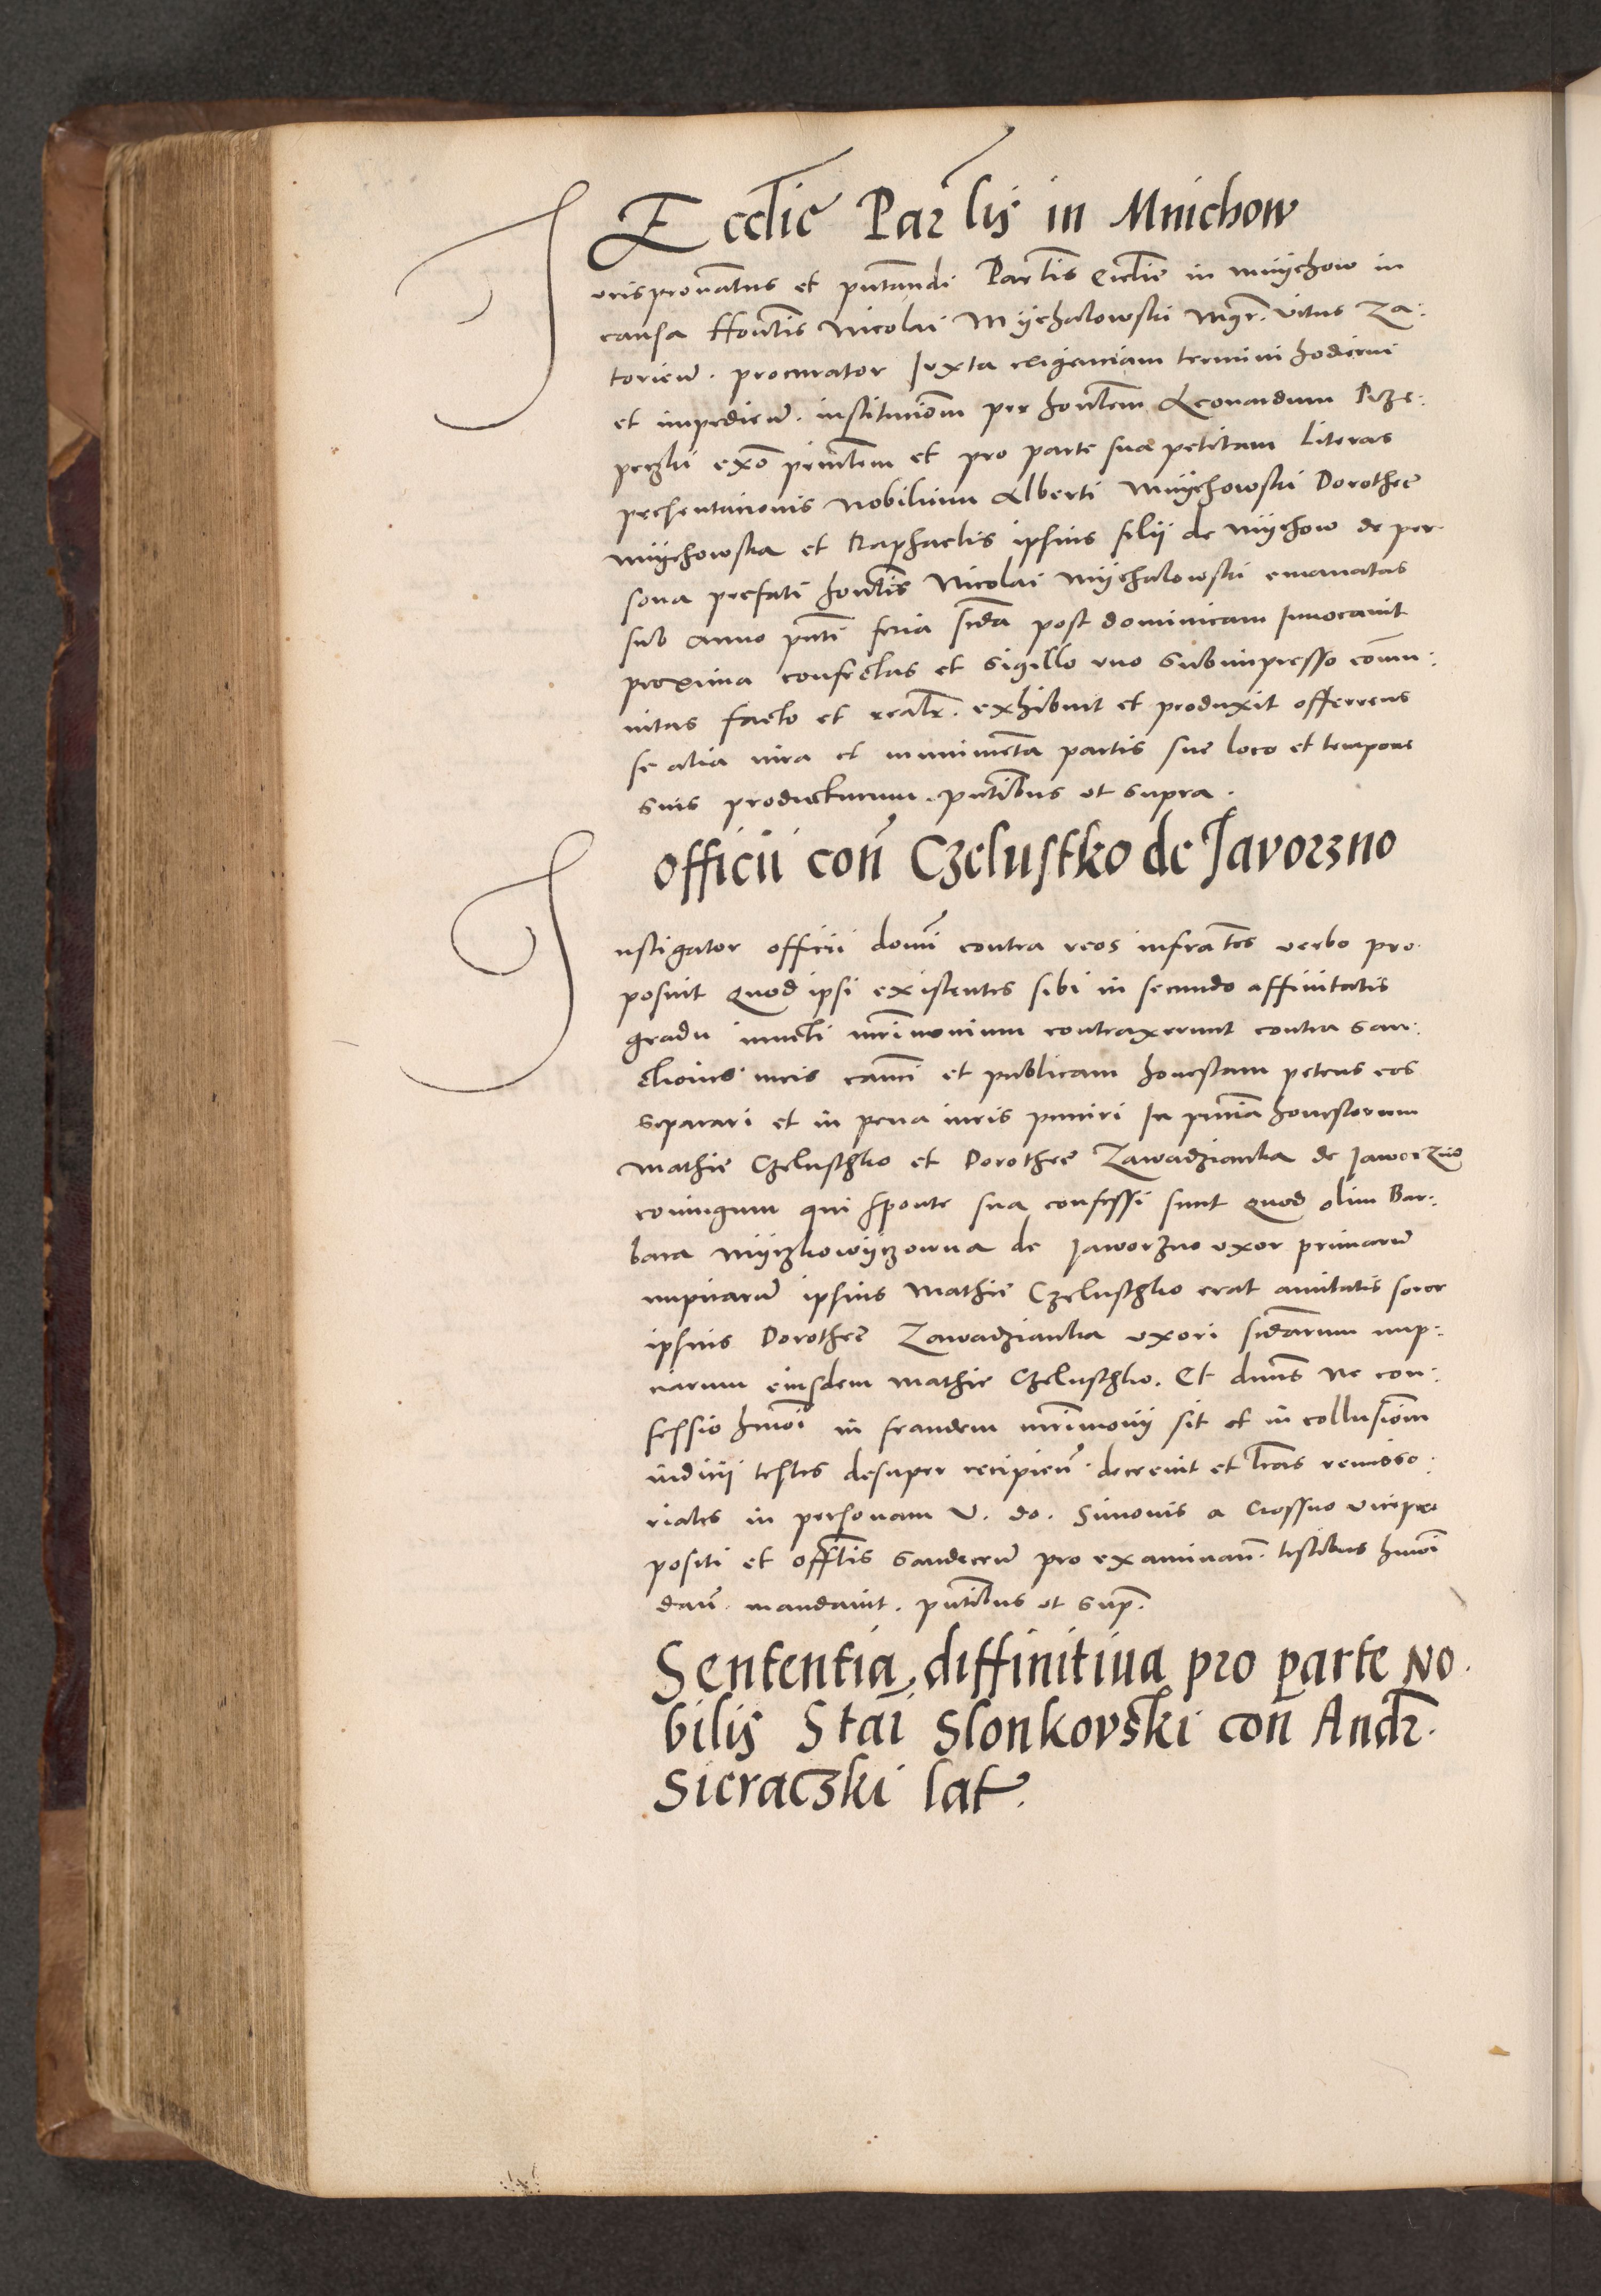 Ecclie Parlis in Mnichow
Jurispronatus et putandi Partis Ecclie in mnychow in
causa Hontis Nicolai Mychalowski Mgr. vitus Za:
torien. procurator Juxta exigenciam termini hodierni
et impedien. institucionem per hontem Leonardum Prze:
peczki exo pemtem et pro parte sua petitam Literas
presentacionis Nobilium Alberti Mnychowski Dorothee
mnychowska et Raphaelis ipsius filii de mychow de per
sona prefati hontis Nicolai mychalowski emanatas
sub Anno pnti feria scda post dominicam Inuocauit
proxima confectas et Sigillo vno Subimpresso comu:
nitas facto et realr. exhibuit et produxit offerens
se alia iura et munimenta partis sue loco et tempore
suis producturum. pntibus vt supra.
officii con Czelustko de Javorzno
Instigator officii domi contra reos infrates verbo pro
posuit Quod ipsi existentes sibi in secundo affinitatis
gradu iuncti mrimonium contraxerunt contra san:
ctioins iuris canci et publicam honestam petens eos
separari et in pena iuris puniri In pntia honestorum
Mathie Czeluschko et Dorothee Zawadzianka de Jaworzno
coniugum qui sponte sua confessi sunt Quod olim Bar:
bara myczkowyczowna de Jaworzno vxor primarum
nupciarum ipsius Mathie Czeluschko erat amitalis soror
ipsius Dorothee Zawadzianka vxori scdarum nup:
ciarum eiusdem Mathie Czeluschko. Et dnus Ne con:
fessio hmoi in fraudem mrimonii sit et in collusiom
iudicii testes desuper recipien. decreuit et lras remisso:
riales in personam V. do. Simonis a Crossno vicepre
positi et offtis Sandecen pro examinan. testibus hmoi
dan. mandauit. pntibus vt sup.
Sententia diffinitiua pro parte No.
bilis Stai Slonkovski con Andr.
Sieraczki lat.